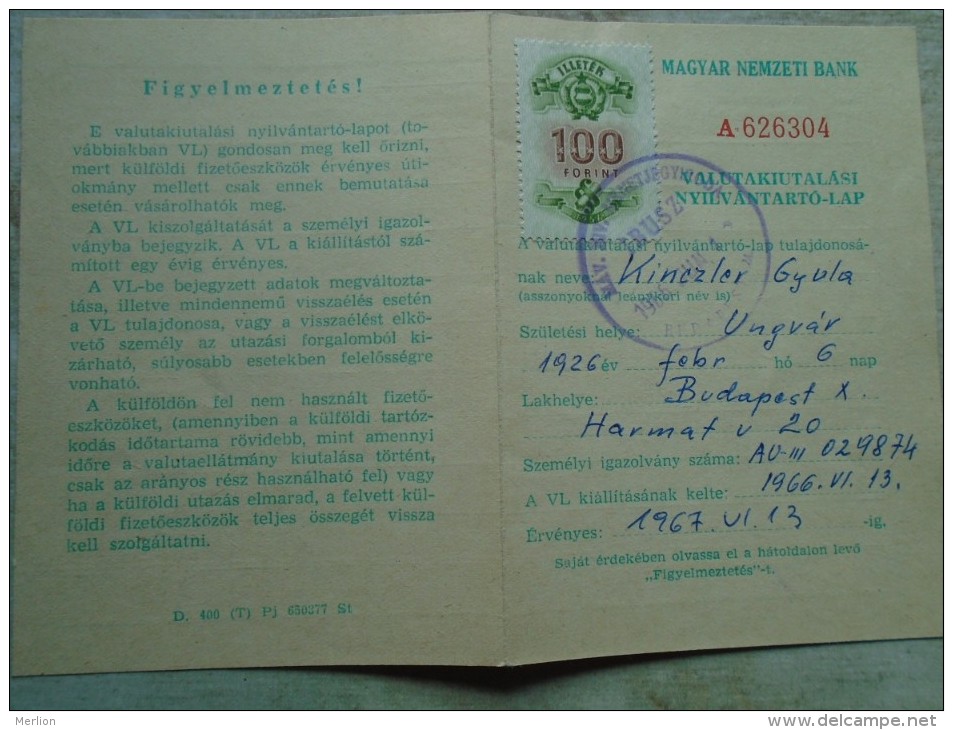 Figyelmeztetés!
E valutakiutalási nyilvántartó-lapot (to-
vábbiakban VL) gondosan meg kell őrizni,
mert külföldi fizetőeszközök érvényes úti-
okmány mellett csak ennek bemutatása
esetén vásárolhatók meg.
A VL kiszolgáltatását a személyi igazol-
ványba bejegyzik. A VL a kiállítástól szá-
mított egy évig érvényes.
A VL-be bejegyzett adatok megváltozta-
tása, illetve mindennemű visszaélés esetén
a VL tulajdonosa, vagy a visszaélést elkö-
vető személy az utazási forgalomból ki-
zárható, súlyosabb esetekben felelősségre
vonható.
A külföldön fel nem használt fizető-
eszközöket, (amennyiben a külföldi tartóz-
kodás időtartama rövidebb, mint amennyi
időre a valutaellátmány kiutalása történt,
csak az arányos rész használható fel) vagy
ha a külföldi utazás elmarad, a felvett kül-
földi fizetőeszközök teljes összegét vissza
kell szolgáltatni.
D. 400 (T) Pj 650377 St
ILLETÉK
100
FORINT
MAGYAR NEMZETI BANK
A 626304
VALUTAKIUTALÁSI
NYILVÁNTARTÓ-LAP
A valutakiutalási nyilvántartó-lap tulajdonosá-
nak neve: Kinczler Gyula
(asszonyoknál leánykori név is)
Születési helye: Ungvár
1926 év febr hó 6 nap
Lakhelye: Budapest X.
Harmat u 20
Személyi igazolvány száma: AU-III 029874
A VL kiállításának kelte: 1966. VI. 13.
Érvényes: 1967. VI. 13 -ig,
Saját érdekében olvassa el a hátoldalon levő
„Figyelmeztetés”-t.
Merlion
www.delcampe.net